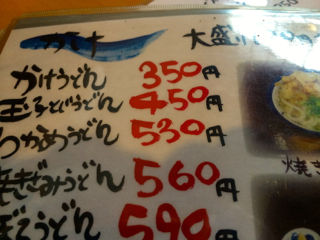 大盛
かけうどん 350円
玉子とじうどん 450円
わかめうどん 530円
うどん 560円
うどん 590円
焼